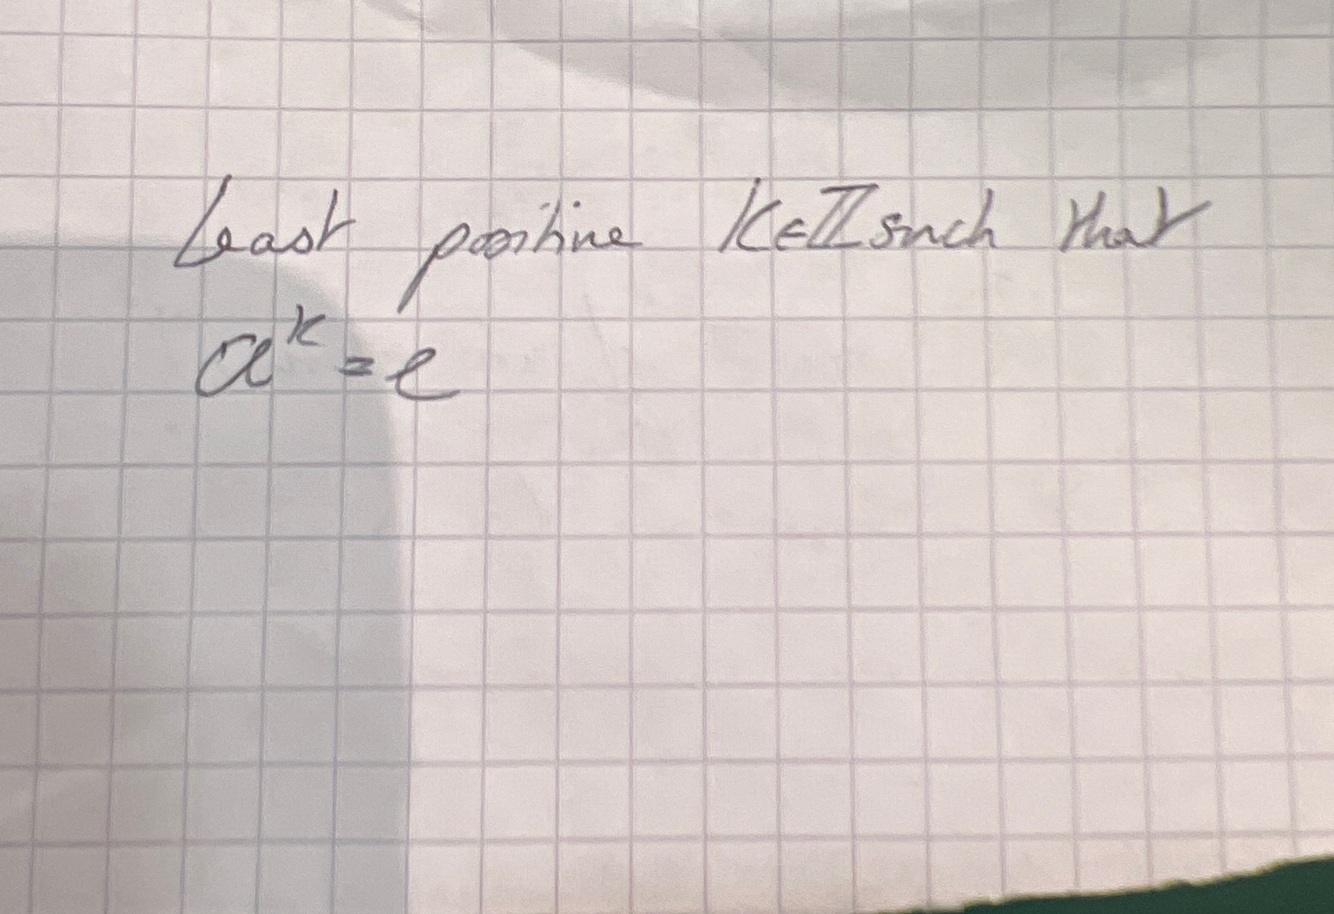 Least positive k∈ℤ such that
a^k = e